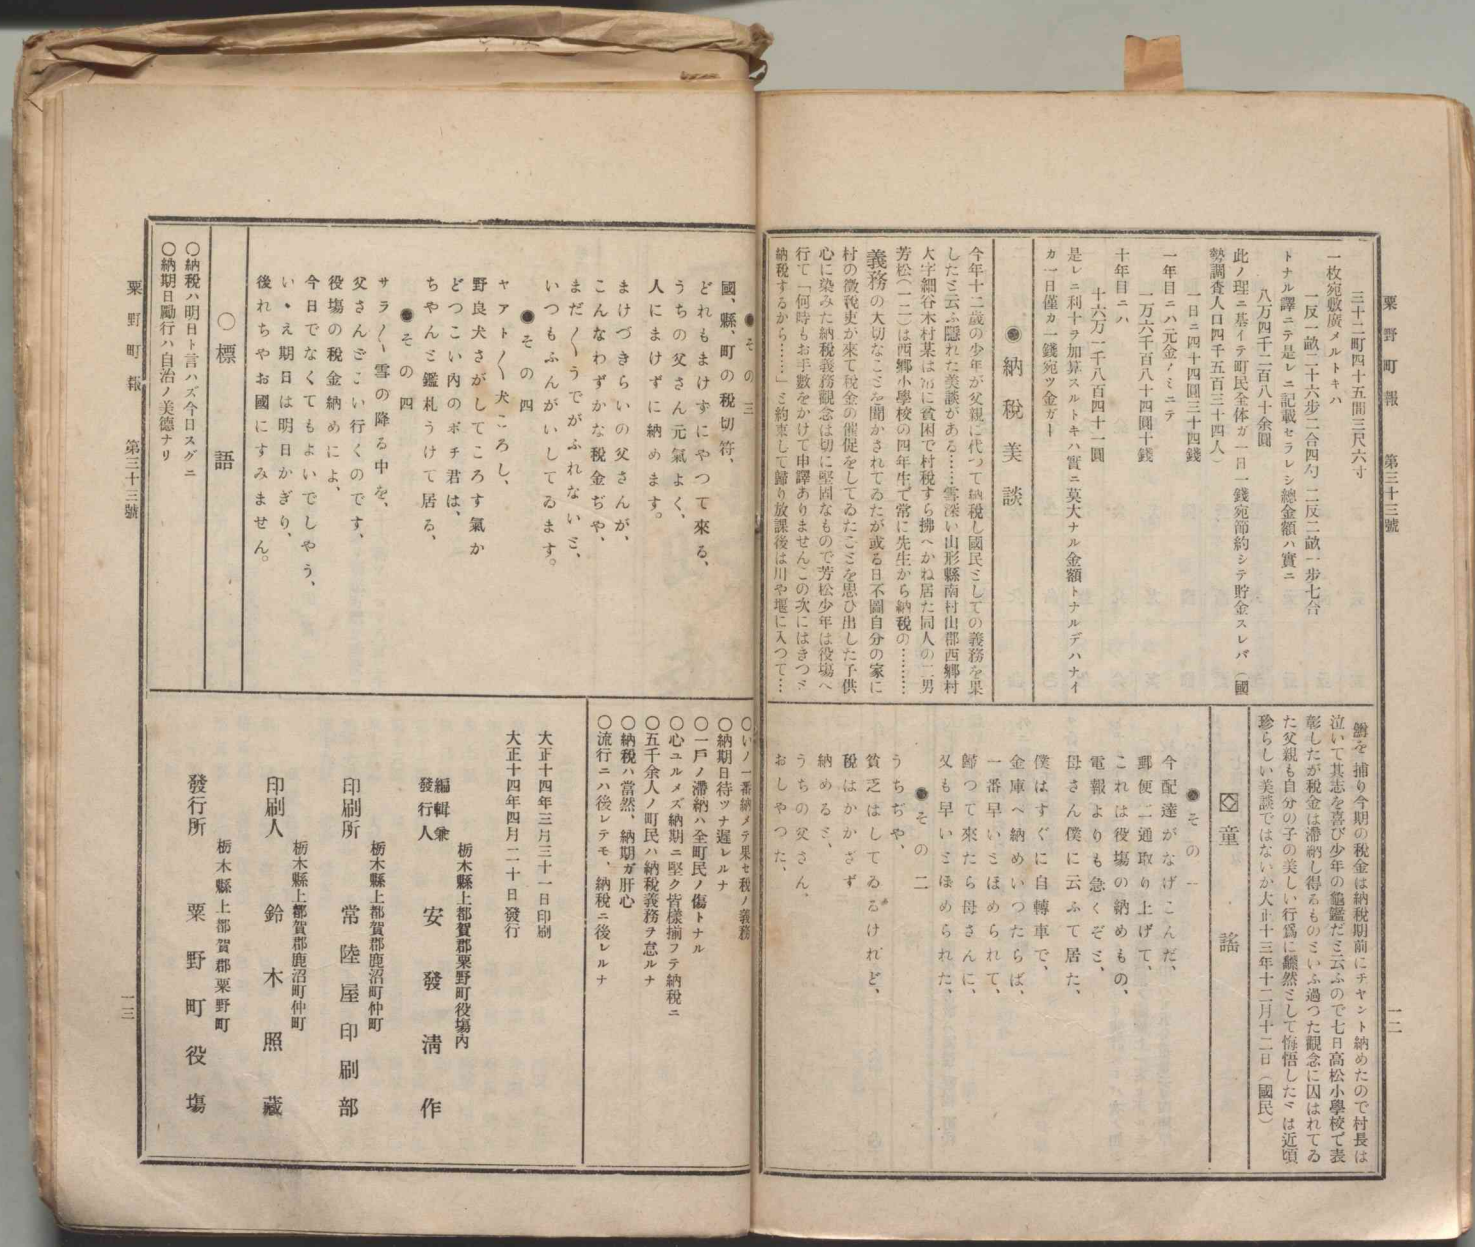 粟野町報 第三十三號
三十二町四十五間三尺六寸
一枚宛敷廣メルトキハ
一反一畝二十六歩二合四勺 二反二畝一歩七合
トナル譯ニテ是レニ記載セラレシ總金額ハ實ニ
八万四千二百八十余圓
此ノ理ニ基イテ町民全体ガ一日一錢宛節約シテ貯金スレバ(國
勢調査人口四千五百三十四人)
一日ニ四十四圓三十四錢
一年目ニハ元金ノミニテ
一万六千百八十四圓十錢
十年目ニハ
十六万一千八百四十一圓
是レニ利十ヲ加算スルトキハ實ニ莫大ナル金額トナルデハナイ
カ一日僅カ一錢宛ツ金ガ!
●納税美談
今年十二歳の少年が父親に代つて納税し國民としての義務を果
したと云ふ隱れた美談がある……雪深い山形縣南村山郡西郷村
大字細谷木村某は常に貧困で村税すら拂へかね居た同人の二男
芳松(一二)は西郷小學校の四年生で常に先生から納税の………
義務の大切なことを聞かされてゐたが或る日不圖自分の家に
村の徴税吏が來て税金の催促をしてゐたことを思ひ出した子供
心に染みた納税義務觀念は切に堅固なもので芳松少年は役塲へ
行て「何時もお手數をかけて申譯ありませんこの次にはきつと
納税するから……」と約束して歸り放課後は川や堰に入つて…
鰌を捕り今期の税金は納税期前にチヤント納めたので村長は
泣いて其志を喜び少年の龜鑑だと云ふので七日高松小學校で表
彰したが税金は滯納し得るものといふ過つた觀念に囚はれてゐ
た父親も自分の子の美しい行爲に飜然として悔悟したとは近頃
珍らしい美談ではないか大正十三年十二月十二日(國民)
童謠
●その一
今配達がなげこんだ、
郵便二通取り上げて、
これは役塲の納めもの、
電報よりも急くぞと、
母さん僕に云ふて居た、
僕はすぐに自轉車で、
金庫へ納めいつたらば、
一番早いとほめられて、
歸つて來たら母さんに、
又も早いとほめられた、
●その二
うちぢや、
貧乏はしてゐるけれど、
税はかかざず
納めると、
うちの父さん、
おしやつた、
一二
●その三
國、縣、町の税切符、
どれもまけすにやつて來る、
うちの父さん元氣よく、
人にまけずに納めます。
まけづきらいの父さんが、
こんなわずかな税金ぢや、
まだ〱うでがふれないと、
いつもふんがいしてゐます。
●その四
ヤアト〱犬ころし、
野良犬さがしてころす氣か
どつこい内のポチ君は、
ちやんと鑑札うけて居る、
●その四
サラ〱雪の降る中を、
父さんどこい行くのです、
役塲の税金納めによ、
今日でなくてもよいでしやう、
い、え期日は明日かぎり、
後れちやお國にすみません。
〇標語
〇納税ハ明日ト言ハズ今日スグニ
〇納期日勵行ハ自治ノ美德ナリ
粟野町報 第三十三號
〇いノ一番納メテ果セ税ノ義務
〇納期日待ツナ遲レルナ
〇一戸ノ滯納ハ全町民ノ傷トナル
〇心ユルメズ納期ニ堅ク皆樣揃フテ納税ニ
〇五千余人ノ町民ハ納税義務ヲ怠ルナ
〇納税ハ當然、納期ガ肝心
〇流行ニハ後レテモ、納税ニ後レルナ
大正十四年三月三十一日印刷
大正十四年四月二十日發行
栃木縣上都賀郡粟野町役塲内
編輯兼發行人 安發淸作
栃木縣上都賀郡鹿沼町仲町
印刷所 常陸屋印刷部
栃木縣上都賀郡鹿沼町仲町
印刷人 鈴木照藏
栃木縣上都賀郡粟野町
發行所 粟野町役塲
一三